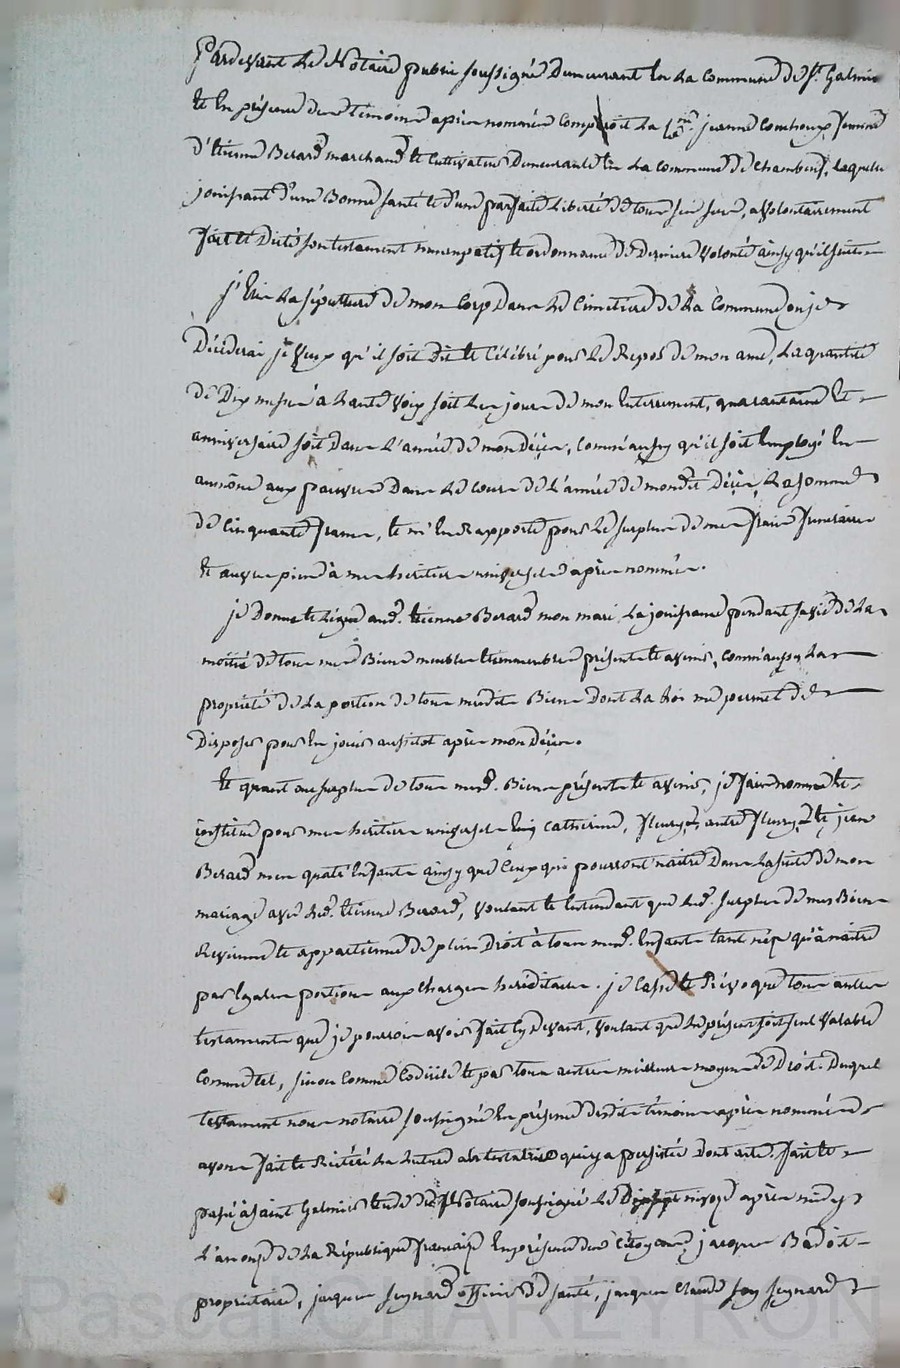 Pardevant Le Notaire public soussigné Demeurant En La Commune de St. Galmier
Et En présence des Témoins après nommés Comparoit La Cne. jeanne Combroux femme
d'Etienne Berard marchand Et Cultivateur Demeurante En La Commune de Chambeuf, Laquelle
jouissant d'une Bonne santé Et d'une parfaite Liberté de tous ses sens, a volontairement
fait Et Dicté son testament nuncupatif Et ordonnance de Derniere volonté ainsy qu'il suit
j'Elis La sépulture de mon Corps Dans Le Cimetiere de La Commune ou je
Décéderai je veux qu'il soit Dit Et Célébré pour Le Repos de mon ame, La quantité
de Dix messes à haute voix soit Les jours de mon Enterrement, quarantaine Et
anniversaire soit Dans L'année de mon Décès, Comm'aussy qu'il soit Employé En
aumône aux pauvres Dans Le Cours de L'année de mondit Décès, La somme
de Cinquante francs, Et m'En Rapporte pour Le surplus de mes frais funeraires
Et œuvres pies à mes heritiers universels après nommés.
je Donne Et Légue aud. Etienne Berard mon mari La jouissance pendant sa vie de La
moitié de tous mes Biens meubles Et immeubles présents Et avenir, Comm'aussy La
propriété de La portion de tous mesdits Biens Dont La Loi me permet de
Disposer pour En jouir aussitot après mon Décès.
Et quant au surplus de tous mesd. Biens présents Et avenir, je fais nomme Et
institue pour mes heritiers universels Catherine, fleury, autre fleury Et jean
Berard mes quatre Enfants ainsy que Ceux qui pourront naitre Dans La suite de mon
mariage avec Led. Etienne Berard, voulant Et Entendant que Led. surplus de mes Biens
Revienne Et appartienne de plein Droit à tous mesd. Enfants tant nés qu'à naitre
par Egales portions aux Charges héréditaires. je Casse Et Révoque tous autres
testaments que je pourrois avoir fait Cy Devant, voulant que Le présent soit seul valable
Comme tel, sinon Comme Codicile Et par tous autres meilleurs moyens de Droit. Duquel
testament nous notaire soussigné En présence desdits témoins après nommés
avons fait Et Réitéré La Lecture a la testatrice qui y a persisté Dont acte. fait Et
passé à Saint Galmier Etude du Notaire soussigné Le nivose après midy
L'an onze de La République française En présence des Citoyens jacques Badoit
propriétaire, jacques seynard officier de santé, jacques Claude seynard
Pascal CHAREYRON